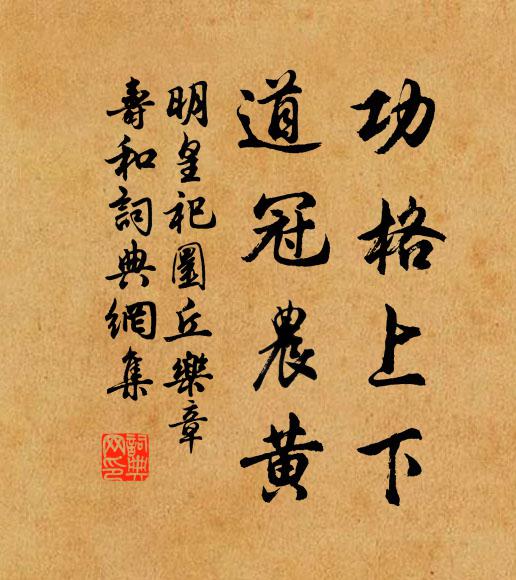 功格上下
道冠農黃
明皇祀圜丘樂章
壽和詞典網集
詞典
网印